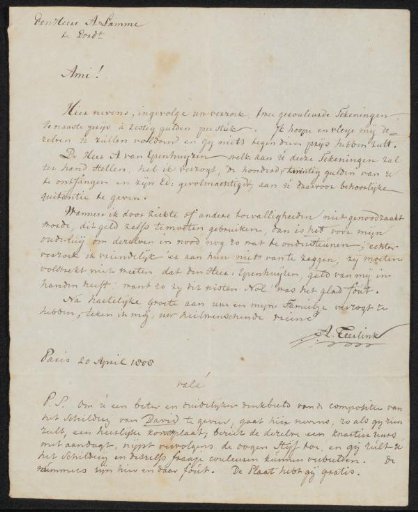 Den Heer A Lamme
te Dordt
Ami!
Hier nevens, ingevolge uw verzoek, twee gecouleurde Tekeningen
de naaste prijs is zestig gulden per stuk. Ik hoope en vleye mij
zullen voldoend en gij niets tegen den prys hebben zult.
De Heer A van Epenhuyzen welk aan U deze Tekeningen zal
ter hand stellen, heb ik verzogt, de honderd twintig gulden van U
te ontfangen en zyn Ed. gevolmachtigd, aan U daarvoor behoorlyke
quitantie te geven.
Wanneer ik door ziekte of andere toevalligheden niet genoodzaakt
worde, dit geld zelfs te moeten gebruiken, dan is het voor mijn
ouderlui om dezelven in nood nog zo wat te ondersteunen; echter
verzoek ik vriendelyk er aan hun niets van te zeggen, zij moeten
volstrekt niet weeten dat den Heer Epenhuyzen, geld van mij in
handen heeft want zo zij dit wisten Nol was het glad fout.
Na hartelyke groete aan uw en mijne Familje verzogt te
hebben, teken ik mij, uw heilwenschende vriend
A. Teerlink
Paris 20 April 1808
valé
P.S. Om U een beter en duidelijker denkbeeld van de compositie van
het Schildery van David te geven, gaat hier nevens, zo als gij zien
zult, een kostlyke plaat, beziet de dezelve een kwartier uurs
met aandagt, nypt vervolgens de oogen styf toe, en gij zult U
het Schildery en deszelfs fraaye couleuren kunnen verbeelden. De
nummers zijn hier en daar fout. De Plaat hebt gij gratis.